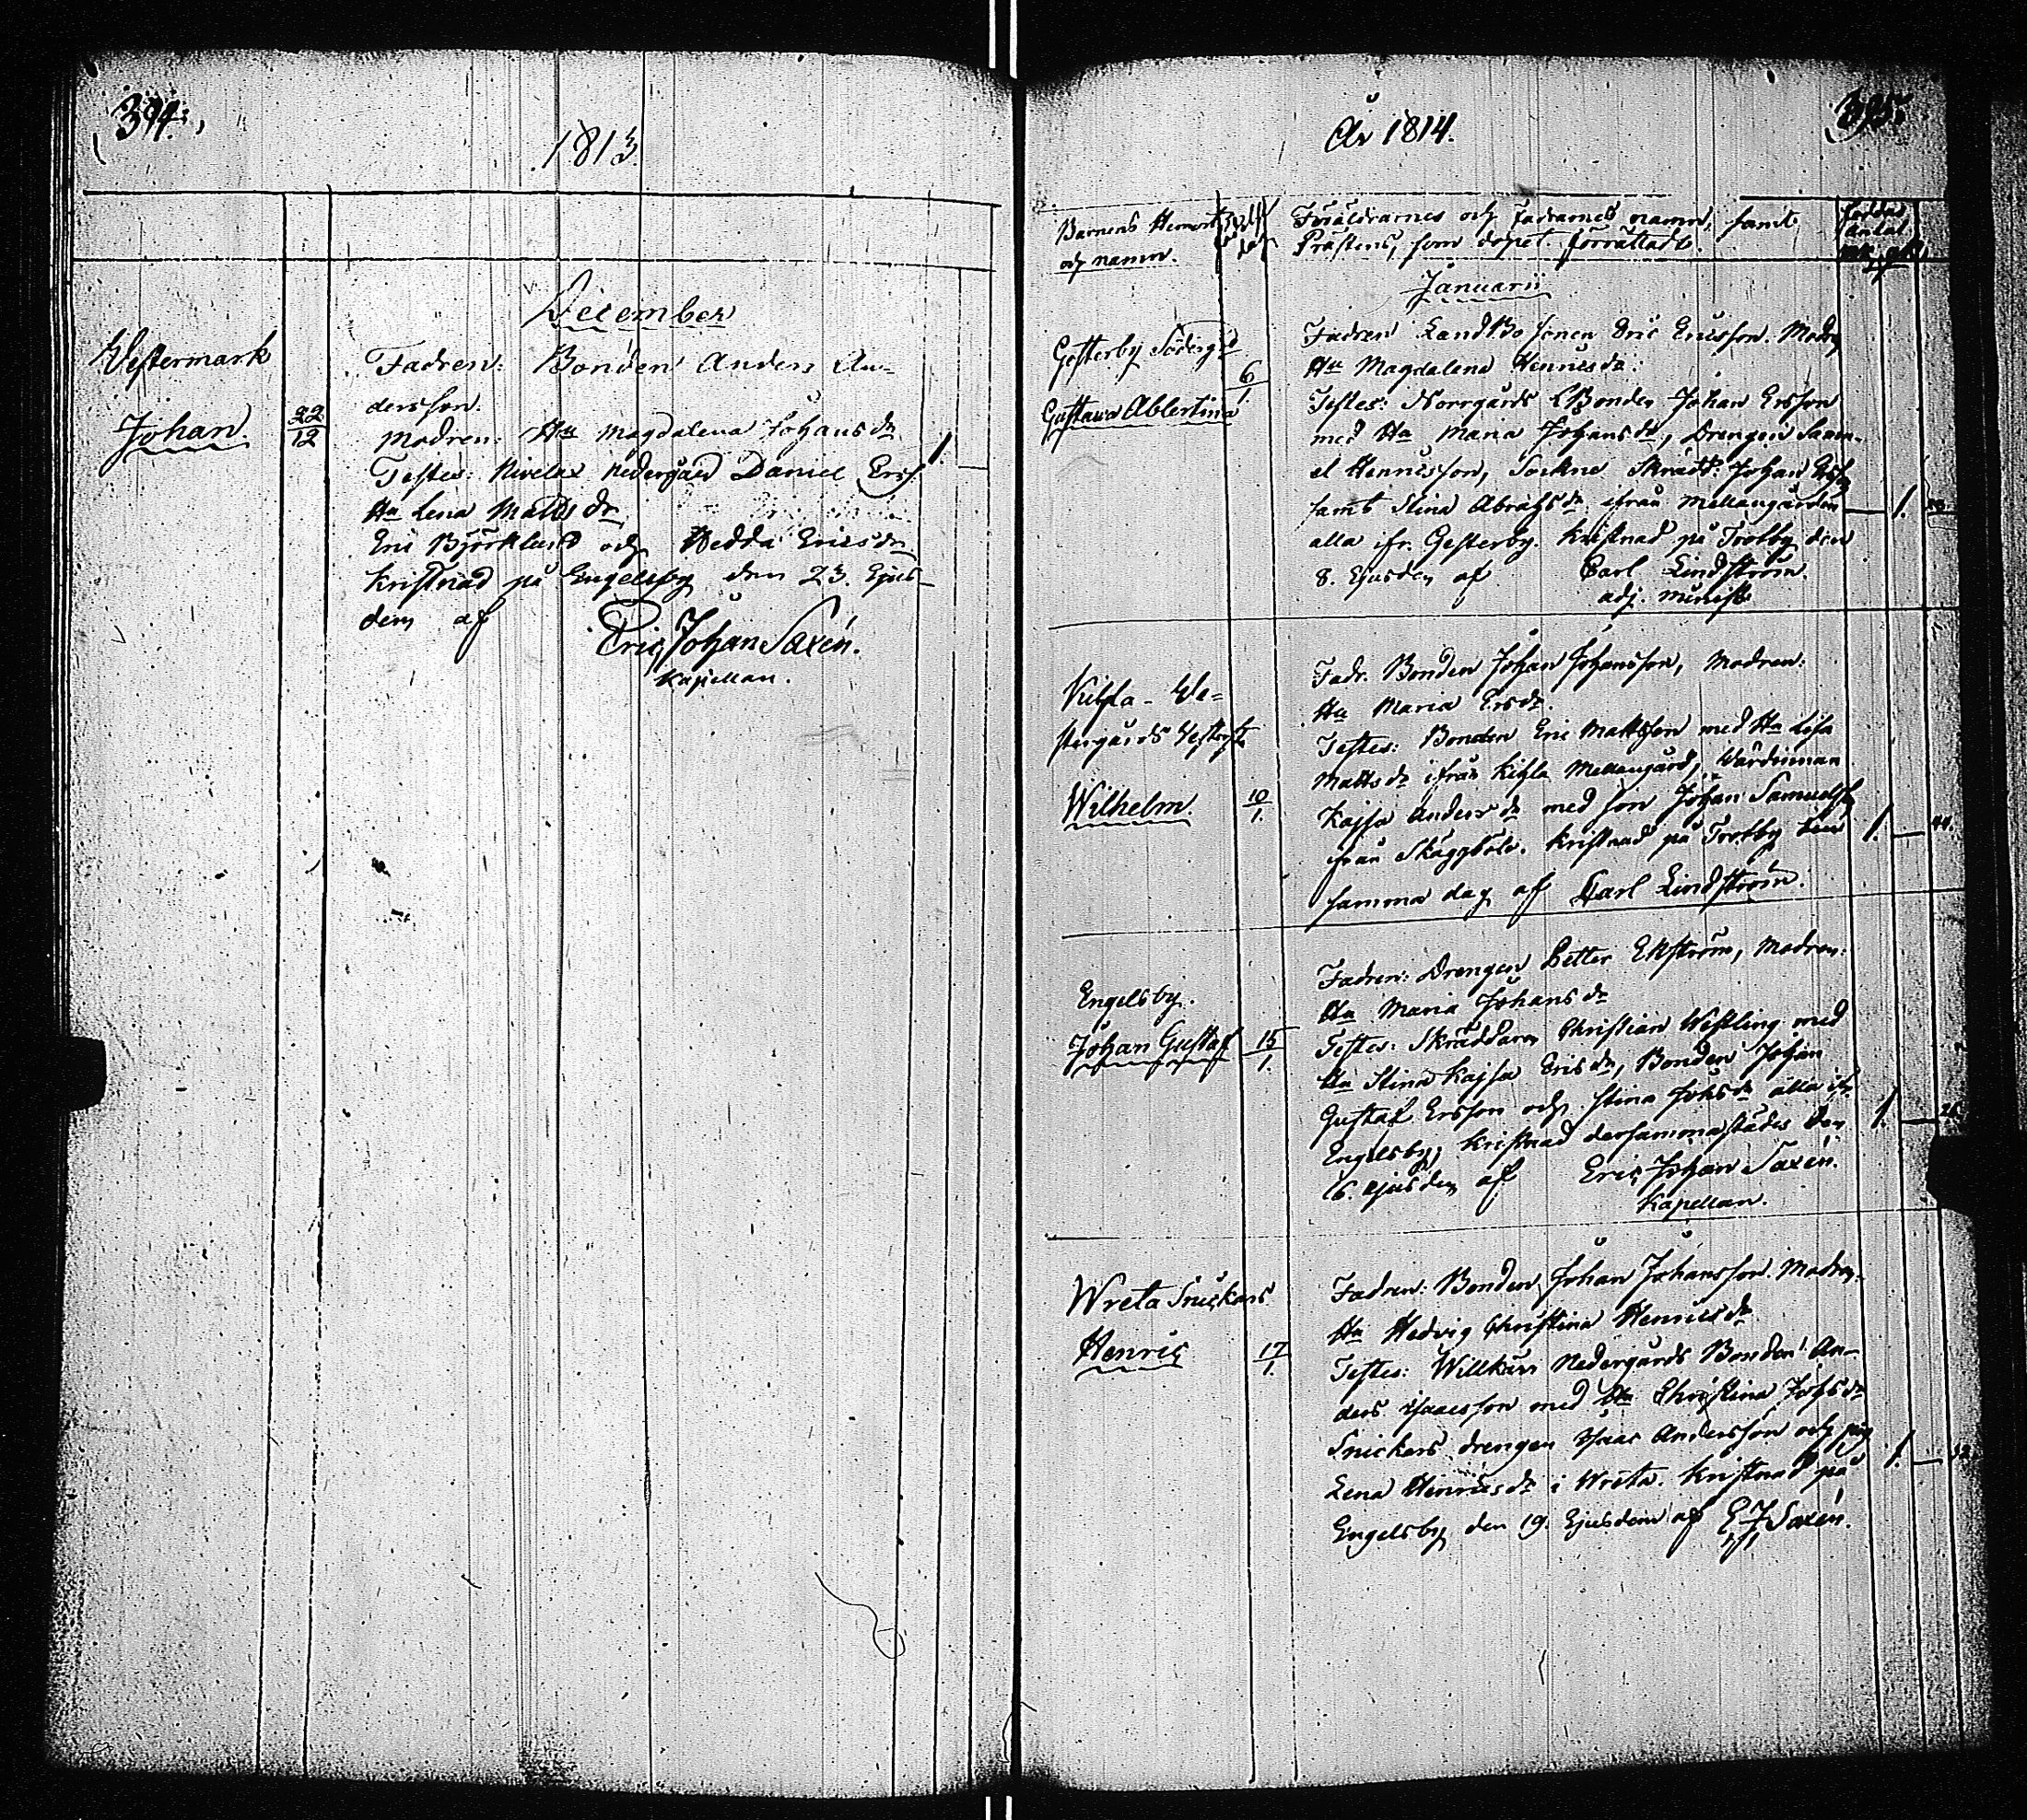 394.
1813.
December
Westermark
Johan
22
12
Fadren: Bonden Anders An-
dersson.
Modren: Hu Magdalena Johansdr
Testes: Nivelax Nedergård Daniel Ers.
Hu Lena Mattsdr
Eric Björklund och Hedda Ericsdr
kristnad på Engelsby den 23. Ejus-
dem af
Eric Johan Saxén.
Kapellan.
1.
395.
År 1814.
Barnens Hemvist
och namn.
Föräldrarnes och Faddrarnes namn, samt
Prästens, som dopet förrättade.
Januarii
Gesterby Södergd
Gustava Albertina
6
1.
Fadren Landbo sonen Eric Ericsson. Modren
Hu Magdalena Henricsdr.
Testes: Norrgårds Bonden Johan Ersson
med Hu Maria Johansdr, Drengen Samu-
el Henricsson, Sockne Skrädd. Johan
samt Stina Abrahsdr ifrån Mellangården
alla ifr. Gesterby. kristnad på Trotby den
8. Ejusdem af Carl Lindström.
adj. minist.
1.
Kihla We-
stergårds
Wilhelm.
10
1.
Fadr. Bonden Johan Johansson, Modren:
Hu Maria Ersdr.
Testes: Bonden Eric Mattsson med Hu Lisa
Mattsdr ifrån Kihla Mellangård, Wärdinnan
Kajsa Andersdr med son Johan Samuelss
ifrån Skäggböle. kristnad på Trotby den
samma dag af Carl Lindström.
1.
44.
Engelsby.
Johan Gustaf
15
1.
Fadren: Drengen Petter Ekström, Modren:
Hu Maria Johansdr
Testes: Skräddaren Christian Westling med
Hu Stina Kajsa Ericsdr, Bonden Johan
Gustaf Ersson och Stina Johsdr alla ifr.
Engelsby, kristnad dersammastädes den
16. ejusdem af Eric Johan Saxén.
Kapellan.
1.
Wreta Snickars
Henric
17
1.
Fadren: Bonden Johan Johansson. Modren.
Hu Hedvig Christina Henricsdr
Testes: Willkärs Nedergårds Bonden An-
ders Isacsson med Hu Christina Johsdr
Snickars drengen Isaac Andersson och pig
Lena Henricsdr i Wreta. kristnad på
Engelsby den 19. Ejusdem af E. J. Saxén.
1.